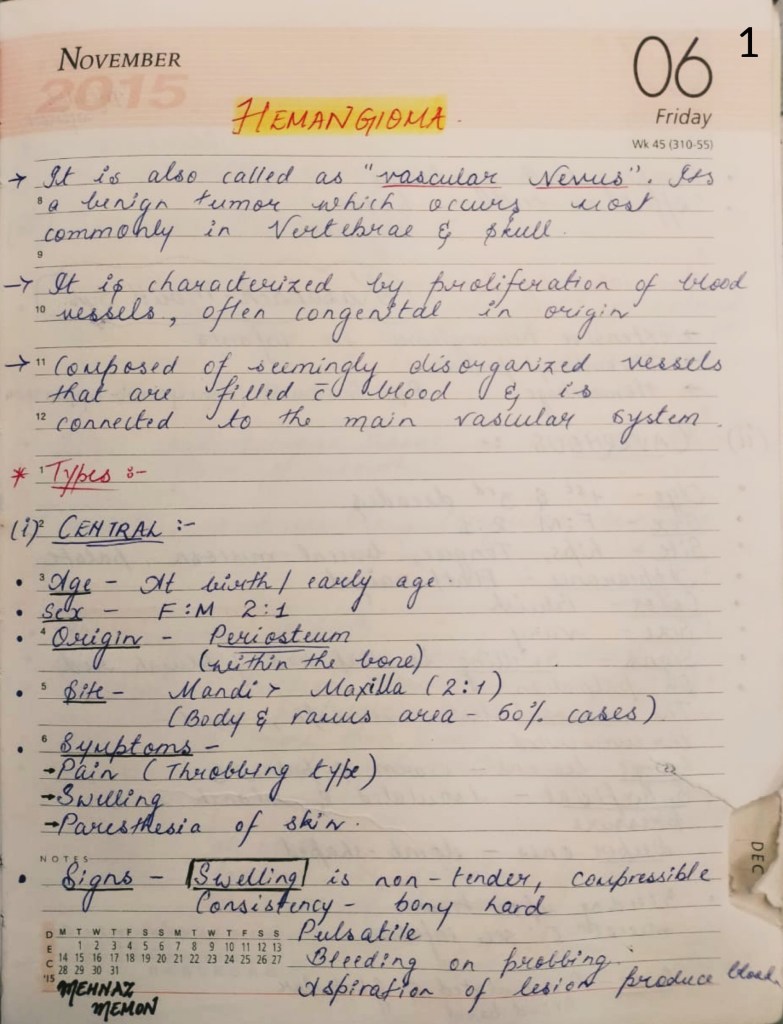 1
NOVEMBER
2015
06
Friday
Wk 45 (310-55)
HEMANGIOMA
→ It is also called as "vascular Nevus". Its
8 a benign tumor which occurs most
commonly in Vertebrae & skull.
9
→ It is characterized by proliferation of blood
10 vessels, often congenital in origin
→ 11 Composed of seemingly disorganized vessels
that are filled c̄ blood & is
12 connected to the main vascular system.
* 1 Types :-
(i) 2 CENTRAL :-
• 3 Age - At birth / early age.
• Sex - F:M 2:1
• 4 Origin - Periosteum
(within the bone)
• 5 Site - Mandi > Maxilla (2:1)
(Body & ramus area - 60% cases)
• 6 Symptoms -
→ Pain (Throbbing type)
→ Swelling
→ Paresthesia of skin.
NOTES
• Signs - Swelling is non-tender, compressible
Consistency - bony hard
Pulsatile
Bleeding on probbing.
Aspiration of lesion produce blood.
DEC '15
M T W T F S S M T W T F S S
1 2 3 4 5 6 7 8 9 10 11 12 13
14 15 16 17 18 19 20 21 22 23 24 25 26 27
28 29 30 31
MEHNAZ
MEMON
DEC